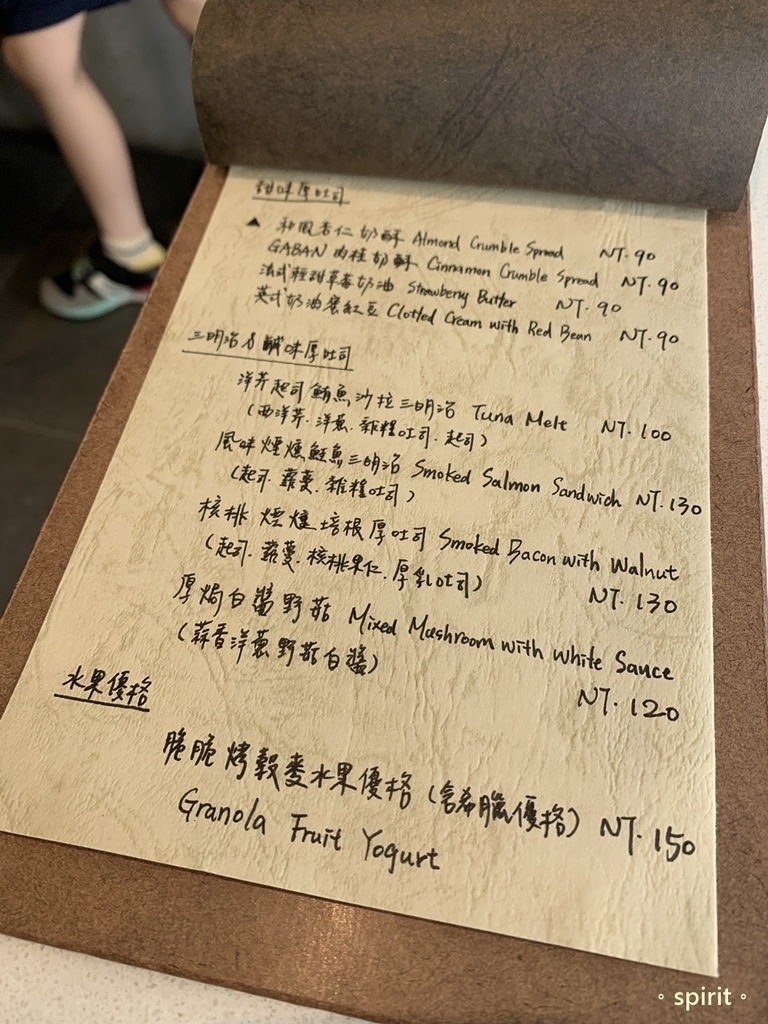 甜味厚吐司
▲ 和風杏仁奶酥 Almond Crumble Spread NT. 90
GABAN 肉桂奶酥 Cinnamon Crumble Spread NT. 90
法式輕甜草莓奶油 Strawberry Butter NT. 90
英式奶油蜜紅豆 Clotted Cream with Red Bean NT. 90
三明治&鹹味厚吐司
洋芥起司鮪魚沙拉三明治 Tuna Melt NT. 100
(西洋芥.洋蔥.雜糧吐司.起司)
風味煙燻鮭魚三明治 Smoked Salmon Sandwich NT. 130
(起司.蘿蔓.雜糧吐司)
核桃煙燻培根厚吐司 Smoked Bacon with Walnut
(起司.蘿蔓.核桃果仁.厚乳吐司) NT. 130
厚焗白醬野菇 Mixed Mushroom with White Sauce
(蒜香洋蔥野菇白醬) NT. 120
水果優格
脆脆烤穀麥水果優格(含希臘優格) NT. 150
Granola Fruit Yogurt
。spirit。